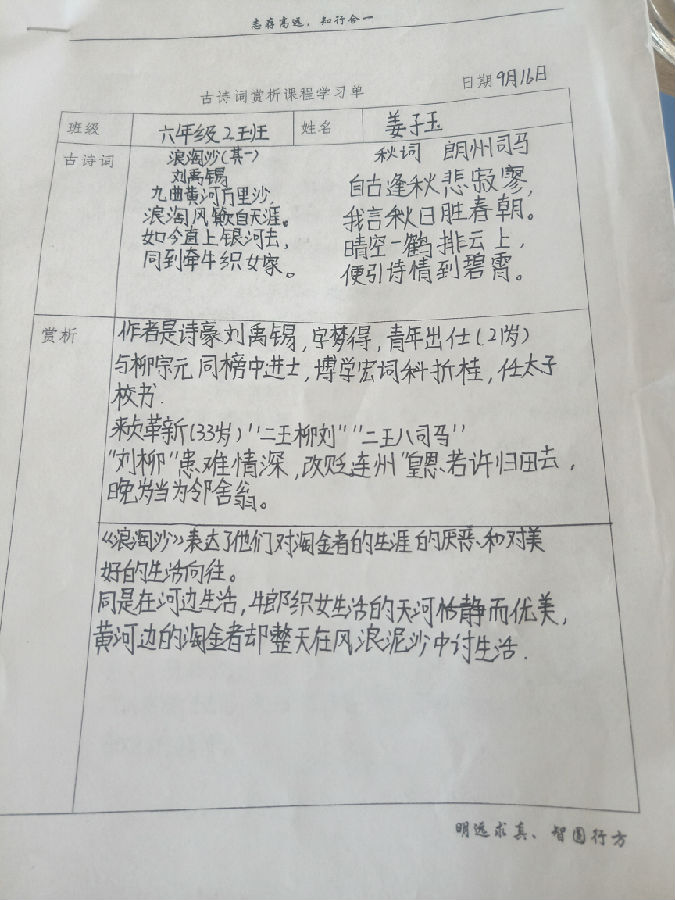 志存高远，知行合一
古诗词赏析课程学习单
日期 9月16日
班级 六年级2班 姓名 姜子玉
古诗词
浪淘沙(其一)
刘禹锡
九曲黄河万里沙,
浪淘风簸自天涯。
如今直上银河去,
同到牵牛织女家。
秋词 朗州司马
自古逢秋悲寂寥,
我言秋日胜春朝。
晴空一鹤排云上,
便引诗情到碧霄。
赏析
作者是诗豪刘禹锡,字梦得,青年出仕(21岁)
与柳宗元同榜中进士,博学宏词科折桂,任太子
校书.
永贞革新(33岁)"二王柳刘""二王八司马"
"刘柳"患难情深,改贬连州"皇恩若许归田去,
晚岁当为邻舍翁。
《浪淘沙》表达了他们对淘金者的生涯的厌恶、和对美
好的生活向往。
同是在河边生活,牛郎织女生活的天河恬静而优美,
黄河边的淘金者却整天在风浪泥沙中讨生活.
明远求真、智圆行方